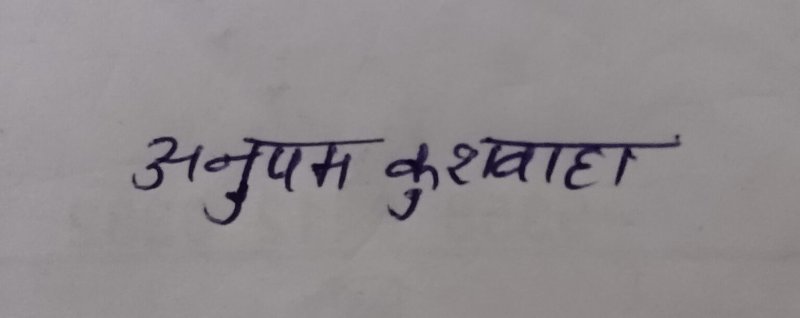 अनुपम कुशवाहा